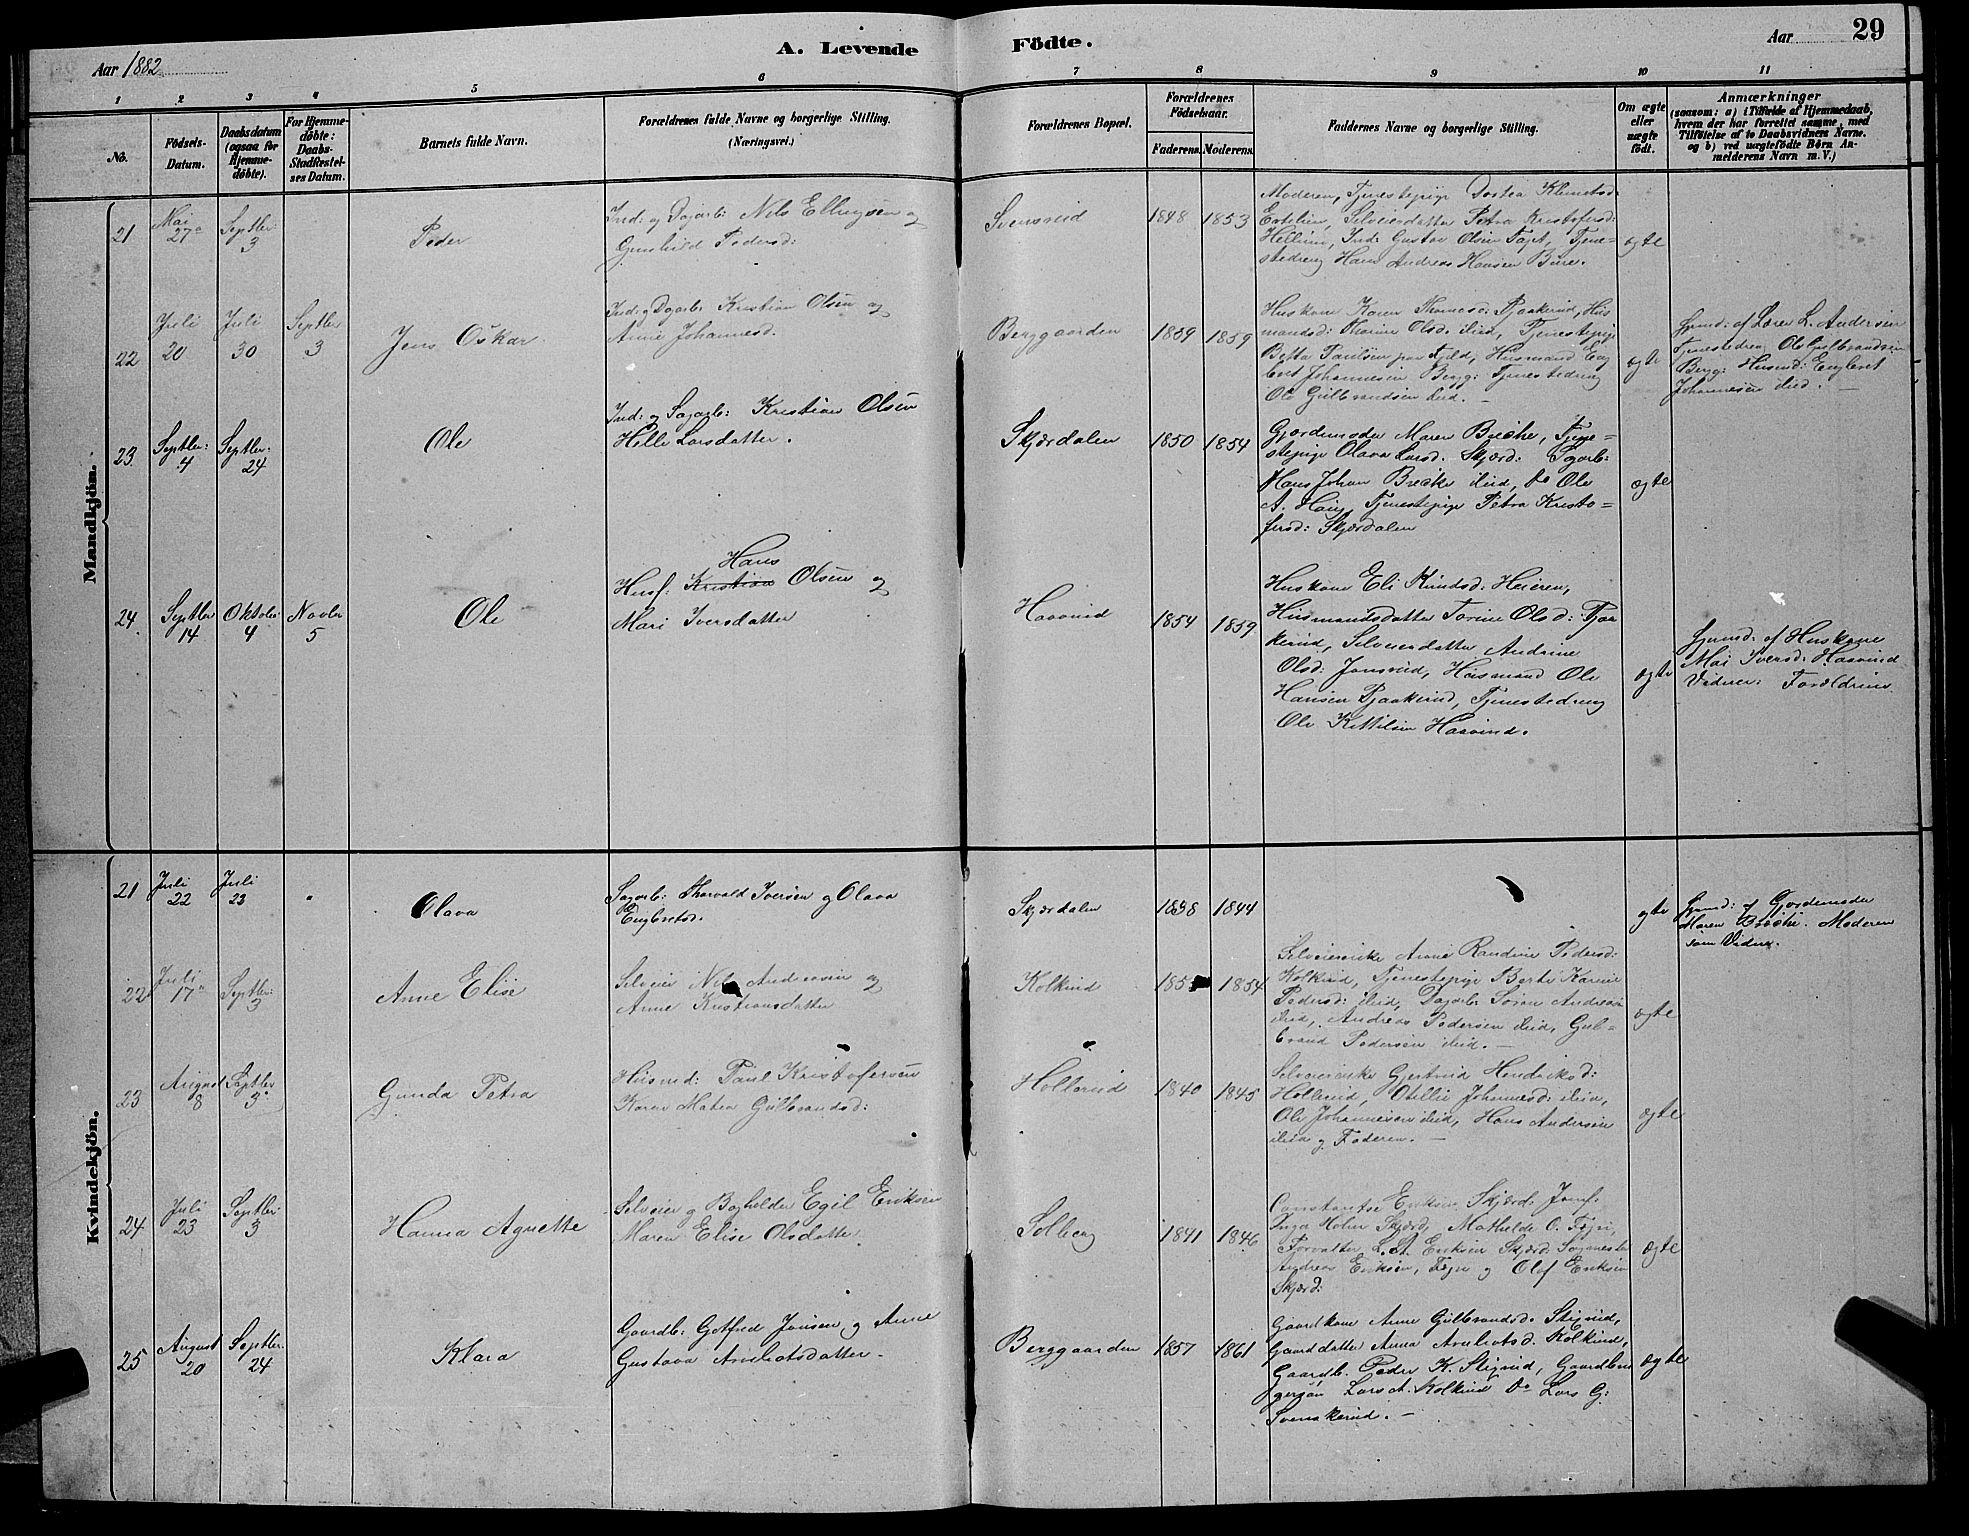 Aar 1882
A. Levende Födte.
Aar
29
1 2 3 4 5 6 7 8 9 10 11
No.
Födsels-
Datum.
Daabsdatum
(ogsaa for
Hjemme-
döbte).
For Hjemme-
döbte:
Daabs-
Stadfæstel-
ses Datum.
Barnets fulde Navn.
Forældrenes fulde Navne og borgerlige Stilling.
(Næringsvei.)
Forældrenes Bopæl.
Forældrenes
Födselsaar.
Faderens. Moderens.
Faddernes Navne og borgerlige Stilling.
Om ægte
eller
uægte
födt.
Anmærkninger
(saasom: a) i Tilfælde af Hjemmedaab,
hvem der har forrettet samme, med
Tilföielse af to Daabsvidners Navne,
og b) ved uægtefödte Börn An-
melderens Navn m. V.)
Mandkjön.
21
Mai
27
Septbr:
3
Peder
Ind: og Dagarb: Nils Ellingsen og
Gunhild Pedersd:
Svensrud
1848 1853
Moderen, Tjenestepige Dortea Klemetsd.
Selveierdatter Petra Kristofersd:
Ind: Gustav Olsen Tajet, Tjene-
stedreng Hans Andreas Hansen Bure.
ægte
22
Juli
20
Juli
30
Septbr
3
Jens Oskar
Ind: og Dagarb: Kristian Olsen og
Anne Johannesd.
Berggaarden
1859 1859
Huskone Karen Thomasd: Pjaakerud, Hus
mandsd: Thorine Olsd. ibid, Tjenestepige
Betta Paulsen paa Fjeld, Husmand Eng
bret Johannesen Berg: Tjenestedreng
Ole Gulbrandsen ibid. -
ægte
Hjemd: af Lærer L. Andersen
Tjenestedreng Ole Gulbrandsen
Berg: Husmd: Engbret
Johannesen ibid. -
23
Septbr:
4
Septbr:
24
Ole
Ind: og Sagarb: Kristian Olsen
Helle Larsdatter.
Skjærdalen
1850 1854
Gjordemoder Maren Brecke, Tjene-
stepige Olava Larsd. Skjærd: Sgarb:
Hans Johan Brecke ibid, Do Ole
A. Haug, Tjenestepige Petra Kristo-
fersd: Skjærdalen
ægte
24
Septbr
14
Oktober
4
Novbr
5
Ole
Hans
Husf: Kristian Olsen og
Mari Iversdatter
Haavrud
1854 1859
Huskone Eli Knudsd: Heieren,
Husmandsdatter Torine Olsd: Pjaa
kerud, Selveierdatter Andrine
Olsd: Jonsrud, Husmand Ole
Hansen Pjaakerud, Tjenestedreng
Ole Kittilsen Haavrud.
ægte
Hjemd: af Huskone
Mai Iversd: Haavrud
Vidner: Forældrene
Kvindekjön.
21
Juli
22
Juli
23
Olava
Sagarb: Thorvald Iversen og Olava
Engbretsd.
Skjærdalen
1838 1844
ægte
Hjemd: af Gjordemoder
Maren Brecke. Moderen
som Vidne.
22
Juli
17
Septbr:
3
Anne Elise
Selveier Nils Andersen og
Anne Kristiansdatter
Kolkind
1854
Selveierenke Anne Randine Pedersd:
Kolkind, Tjenestepige Berte Karine
Pedersd: ibid, Dagarb: Søren Andersen
ibid, Andreas Pedersen ibid, Gul-
brand Pedersen ibid. -
ægte
23
August
8
Septbr
3
Gunda Petra
Husmd: Paul Kristofersen
Karen Matea Gulbrandsd:
Hollerud
1840 1845
Selveierenke Gjertrud Hendriksd:
Hollerud, Otillie Johannesd: ibid,
Ole Johannesen ibid, Hans Andersen
ibid og Faderen. -
ægte
24
Juli
23
Septbr:
3
Hanna Agnette
Selveier og Bogholder Egil Eriksen
Maren Elise Olsdatter
Solberg
1841 1846
Constantse Eriksen Skjærd: Jomf.
Inga Holm Skjærd, Mathilde O.
Forvalter L. A. Eriksen Skjærd:
Andreas Eriksen, og Olof Eriksen
Skjærd:
ægte
25
August
20
Septbr.
24
Klara
Gaardb: Gotfred Jonsen og Anne
Gustava Arnbotsdatter.
Berggaarden
1857 1861
Gaardkone Anne Gulbrandsd. Stigrud,
Gaarddatter Anna Arnbotsd. Kolkind,
Gaardb. Peder K. Stigrud, Gaardbru
gersøn Lars A. Kolkind Do Lars G.
Svenskerud. -
ægte